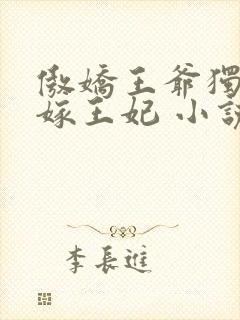 傲嬌王爺獨
嫁王妃 小說
李長進